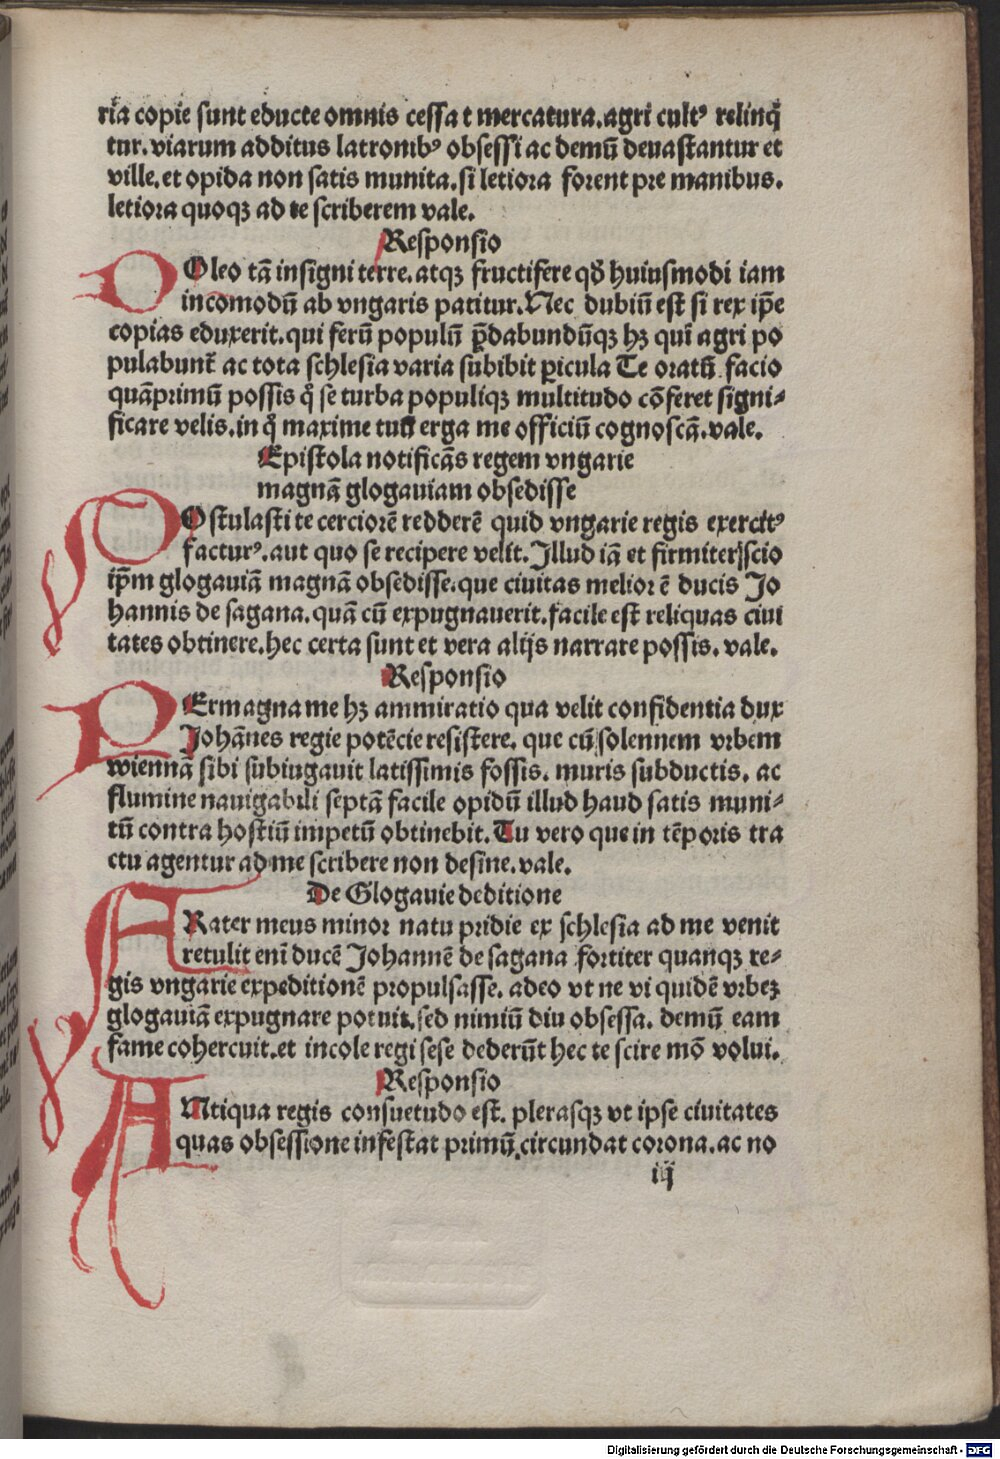 ria copie sunt educte omnis cessa t mercatura. agri cultꝰ relinqͥ
tur. viarum additus latronibꝰ obsessi ac demū deuastantur et
ville. et opida non satis munita. si letiora forent pre manibus.
letiora quoqꝫ ad te scriberem vale.
Responsio
DOleo tā insigni terre. atqꝫ fructifere qđ huiusmodi iam
incomodū ab vngaris patitur. Nec dubiū est si rex ip̄e
copias eduxerit. qui ferū populū p̄dabundūqꝫ hꝫ qui agri po
pulabunt̄ ac tota schlesia varia subibit ꝑicula Te oratū facio
quāprimū possis qͦ se turba populiqꝫ multitudo cōferet signi⸗
ficare velis. in qͦ maxime tuū erga me officiū cognoscā. vale.
Epistola notificās regem vngarie
magnā glogauiam obsedisse
POstulasti te cerciorē redderē quid vngarie regis exercitꝰ
facturꝰ. aut quo se recipere velit. Illud iā et firmiter scio
ip̄m glogauiā magnā obsedisse. que ciuitas melior ē ducis Jo
hannis de sagana. quā cū expugnauerit. facile est reliquas ciui
tates obtinere. hec certa sunt et vera alijs narrare possis. vale.
Responsio
PErmagna me hꝫ ammiratio qua velit confidentia dux
Johānes regie potēcie resistere. que cū solennem vrbem
wiennā sibi subiugauit latissimis fossis. muris subductis. ac
flumine nauigabili septā facile opidū illud haud satis muni⸗
tū contra hostiū impetū obtinebit. Tu vero que in tēporis tra
ctu agentur ad me scribere non desine. vale.
De Glogauie deditione
FRater meus minor natu pridie ex schlesia ad me venit
retulit eni ducē Johannē de sagana fortiter quanqꝫ re⸗
gis vngarie expeditionē propulsasse. adeo vt ne vi quidē vrbeꝫ
glogauiā expugnare potuit. sed nimiū diu obsessa. demū eam
fame cohercuit. et incole regi sese dederūt hec te scire mō volui.
Responsio
ANtiqua regis consuetudo est. plerasqꝫ vt ipse ciuitates
quas obsessione infestat primū circundat corona. ac no
iij
Digitalisierung gefördert durch die Deutsche Forschungsgemeinschaft - DFG